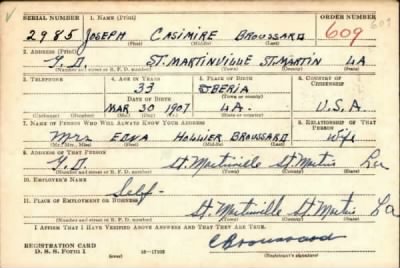 SERIAL NUMBER 1. NAME (Print) ORDER NUMBER
2985 JOSEPH CASIMIRE BROUSSARD 609
(First) (Middle) (Last)
2. ADDRESS (Print)
G.D. ST. MARTINVILLE ST. MARTIN LA
(Number and street or R. F. D. number) (Town) (County) (State)
3. TELEPHONE 4. AGE IN YEARS 5. PLACE OF BIRTH 6. COUNTRY OF CITIZENSHIP
33 IBERIA
DATE OF BIRTH (Town or county)
MAR 30 1907 LA. U.S.A.
(Exchange) (Number) (Mo.) (Day) (Yr.) (State or country)
7. NAME OF PERSON WHO WILL ALWAYS KNOW YOUR ADDRESS 8. RELATIONSHIP OF THAT PERSON
Mrs EDNA HOLLIER BROUSSARD Wife
(Mr., Mrs., Miss) (First) (Middle) (Last)
9. ADDRESS OF THAT PERSON
G.D. St. Martinville St. Martin La
(Number and street or R. F. D. number) (Town) (County) (State)
10. EMPLOYER'S NAME
Self
11. PLACE OF EMPLOYMENT OR BUSINESS
St. Martinville St. Martin La
(Number and street or R. F. D. number) (Town) (County) (State)
I AFFIRM THAT I HAVE VERIFIED ABOVE ANSWERS AND THAT THEY ARE TRUE.
REGISTRATION CARD C Broussard
D. S. S. Form 1 (over) 16—17105 (Registrant's signature)